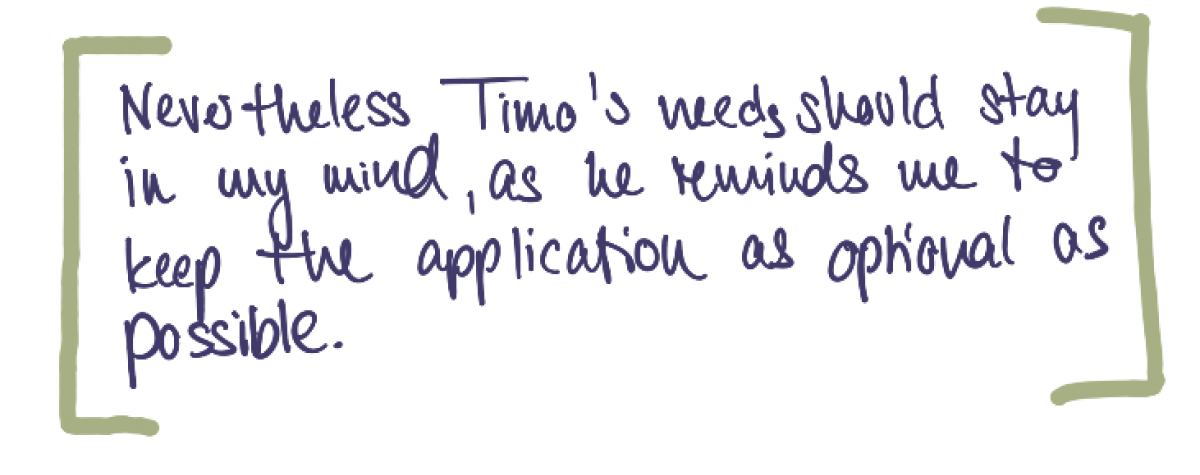 Nevertheless Timo's needs should stay
in my mind, as he reminds me to
keep the application as optional as
possible.